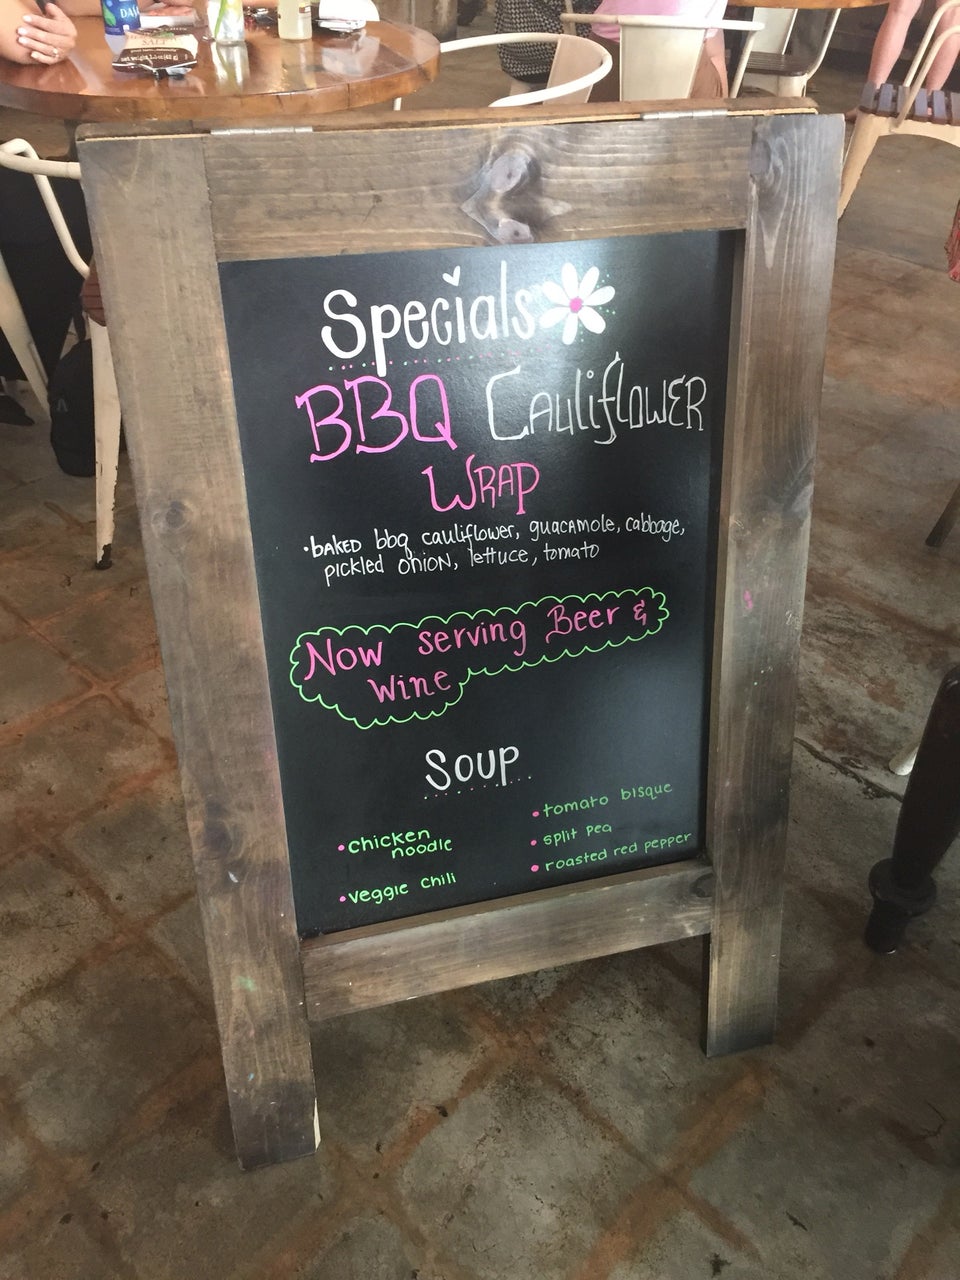 DASANI
SALT
Specials
BBQ CAuliflOWER
WRAP
•bAKED bbq cauliflower, guacamole, cabbage,
pickled oniON, lettuce, tomato
Now serving Beer &
wine
Soup
•chicken
noodle
•veggie chili
•tomato bisque
•split pea
•roasted red pepper